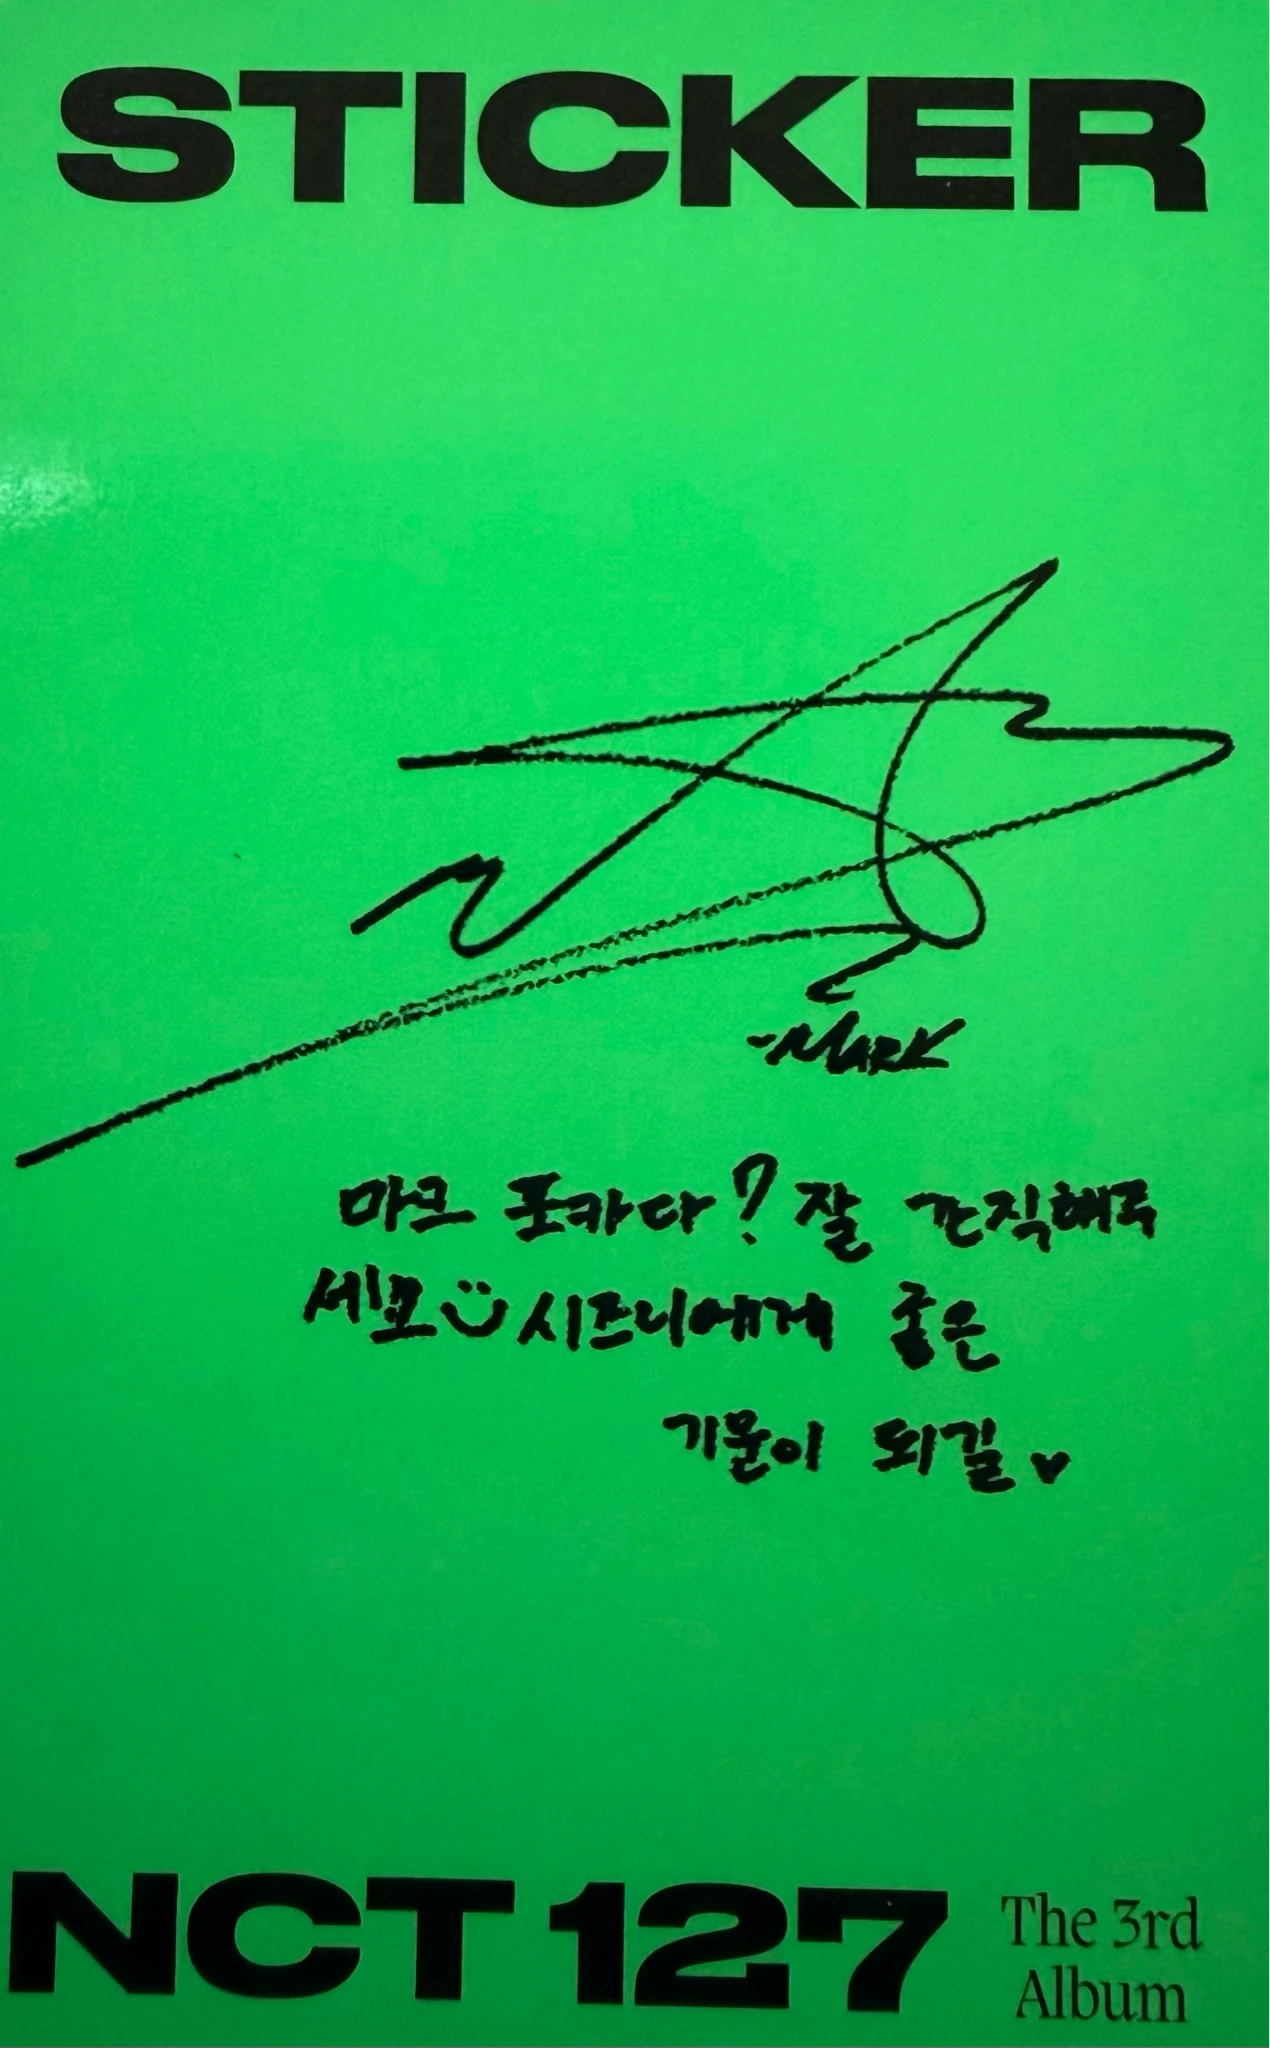 STICKER
-MARK
마크 포카다? 잘 간직해주
세요 시즈니에게 좋은
기운이 되길
NCT 127 The 3rd
Album